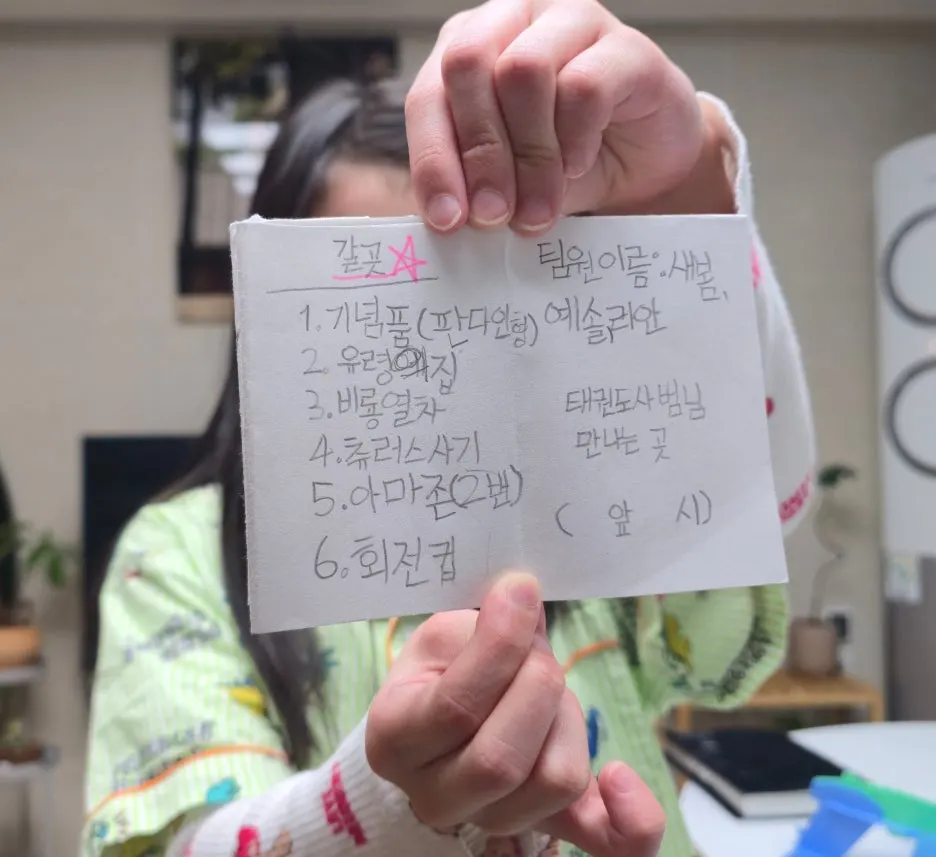 갈곳
1. 기념품(판다인형)
2. 유령의집
3. 비룡열차
4. 츄러스사기
5. 아마존(2번)
6. 회전컵
팀원이름: 새봄,
예솔,리안
태권도사범님
만나는 곳
( 앞 시)